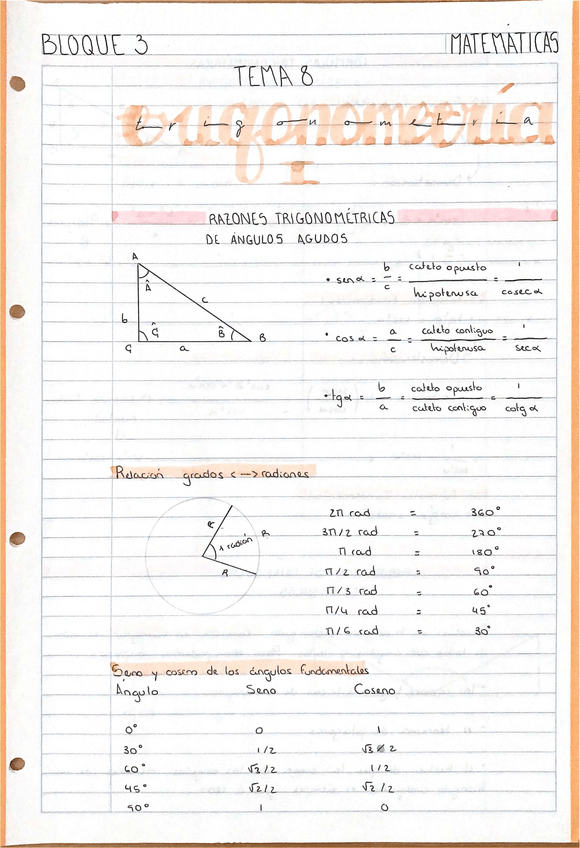 BLOQUE 3 MATEMÁTICAS
TEMA 8
trigonometría
trigonometria
I
RAZONES TRIGONOMÉTRICAS
DE ÁNGULOS AGUDOS
A
Â
c
b
Ĉ
B̂
B
C
a
• sen α = b/c = cateto opuesto / hipotenusa = 1 / cosec α
• cos α = a/c = cateto contiguo / hipotenusa = 1 / sec α
• tg α = b/a = cateto opuesto / cateto contiguo = 1 / cotg α
Relación grados <--> radianes
R
1 radián
R
R
2π rad = 360°
3π/2 rad = 270°
π rad = 180°
π/2 rad = 90°
π/3 rad = 60°
π/4 rad = 45°
π/6 rad = 30°
Seno y coseno de los ángulos fundamentales
Ángulo Seno Coseno
0° 0 1
30° 1/2 √3/2
60° √3/2 1/2
45° √2/2 √2/2
90° 1 0